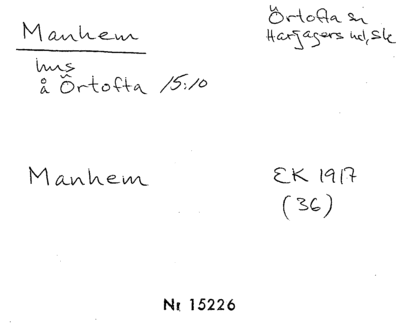 Manhem
Örtofta sn
Harjagers hd, Sk
hus
å Örtofta 15:10
Manhem
EK 1917
(36)
Nr 15226